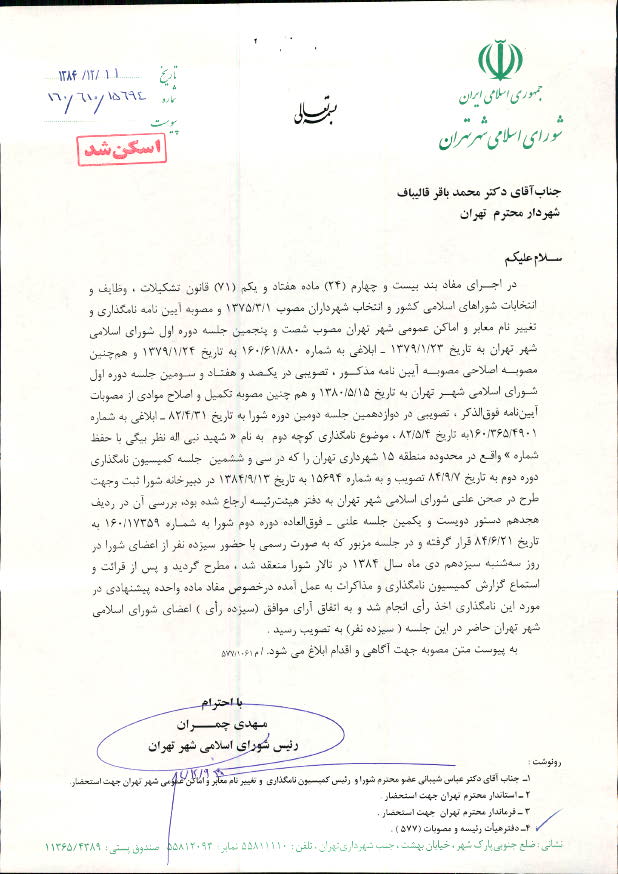 جمهوری اسلامی ایران
شورای اسلامی شهر تهران
بسمه تعالی
تاریخ ۱۳۸۴/۱۲/۱۱
شماره ۱۶۰/۶۱۰/۱۵۶۹۴
پیوست
اسکن شد
جناب آقای دکتر محمد باقر قالیباف
شهردار محترم تهران
سلام علیکم
در اجرای مفاد بند بیست و چهارم (۲۴) ماده هفتاد و یکم (۷۱) قانون تشکیلات ، وظایف و
انتخابات شوراهای اسلامی کشور و انتخاب شهرداران مصوب ۱۳۷۵/۳/۱ و مصوبه آیین نامه نامگذاری و
تغییر نام معابر و اماکن عمومی شهر تهران مصوب شصت و پنجمین جلسه دوره اول شورای اسلامی
شهر تهران به تاریخ ۱۳۷۹/۱/۲۳ ـ ابلاغی به شماره ۱۶۰/۶۱/۸۸۰ به تاریخ ۱۳۷۹/۱/۲۴ و همچنین
مصوبه اصلاحی مصوبه آیین نامه مذکور ، تصویبی در یکصد و هفتاد و سومین جلسه دوره اول
شورای اسلامی شهر تهران به تاریخ ۱۳۸۰/۵/۱۵ و هم چنین مصوبه تکمیل و اصلاح موادی از مصوبات
آیین‌نامه فوق‌الذکر ، تصویبی در دوازدهمین جلسه دومین دوره شورا به تاریخ ۸۲/۴/۳۱ ـ ابلاغی به شماره
۱۶۰/۳۶۵/۴۹۰۱به تاریخ ۸۲/۵/۴ ، موضوع نامگذاری کوچه دوم به نام « شهید نبی اله نظر بیگی با حفظ
شماره » واقع در محدوده منطقه ۱۵ شهرداری تهران را که در سی و ششمین جلسه کمیسیون نامگذاری
دوره دوم به تاریخ ۸۴/۹/۷ تصویب و به شماره ۱۵۶۹۴ به تاریخ ۱۳۸۴/۹/۱۳ در دبیرخانه شورا ثبت وجهت
طرح در صحن علنی شورای اسلامی شهر تهران به دفتر هیئت‌رئیسه ارجاع شده بود، بررسی آن در ردیف
هجدهم دستور دویست و یکمین جلسه علنی ـ فوق‌العاده دوره دوم شورا به شماره ۱۶۰/۱۷۳۵۹ به
تاریخ ۸۴/۶/۲۱ قرار گرفته و در جلسه مزبور که به صورت رسمی با حضور سیزده نفر از اعضای شورا در
روز سه‌شنبه سیزدهم دی ماه سال ۱۳۸۴ در تالار شورا منعقد شد ، مطرح گردید و پس از قرائت و
استماع گزارش کمیسیون نامگذاری و مذاکرات به عمل آمده درخصوص مفاد ماده واحده پیشنهادی در
مورد این نامگذاری اخذ رأی انجام شد و به اتفاق آرای موافق (سیزده رأی ) اعضای شورای اسلامی
شهر تهران حاضر در این جلسه ( سیزده نفر) به تصویب رسید .
به پیوست متن مصوبه جهت آگاهی و اقدام ابلاغ می شود. / م ۵۷۷/۱۰۶۱
با احترام
مهدی چمران
رئیس شورای اسلامی شهر تهران
رونوشت :
۱ـ جناب آقای دکتر عباس شیبانی عضو محترم شورا و رئیس کمیسیون نامگذاری و تغییر نام معابر و اماکن عمومی شهر تهران جهت استحضار.
۲ ـ استاندار محترم تهران جهت استحضار .
۳ ـ فرماندار محترم تهران جهت استحضار .
۴ـ دفتر هیأت رئیسه و مصوبات (۵۷۷) .
نشانی : ضلع جنوبی پارک شهر ، خیابان بهشت ، جنب شهرداری تهران ، تلفن : ۵۵۸۱۱۱۱۰ نمابر : ۵۵۸۱۲۰۹۳ صندوق پستی : ۱۱۳۶۵/۴۳۸۹